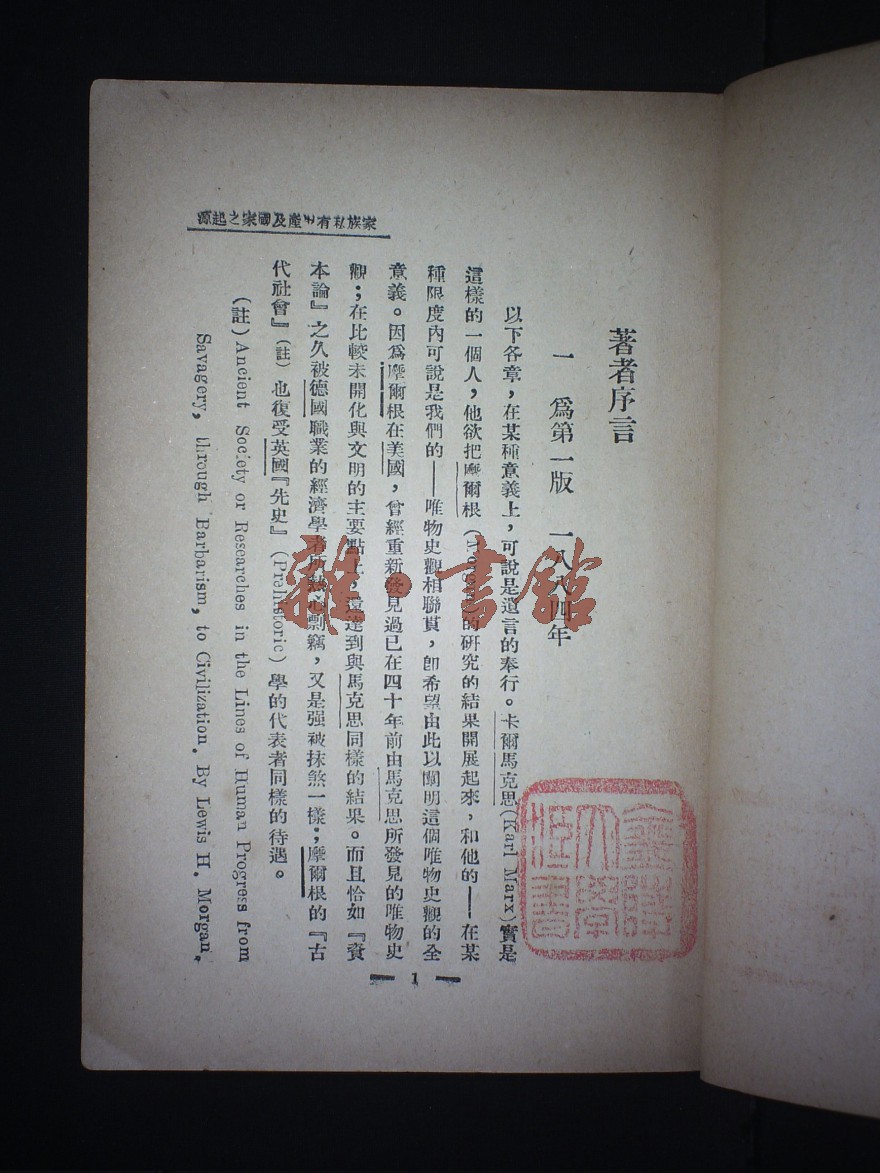 家族私有產及國家之起源
著者序言
一 爲第一版 一八八四年
以下各章，在某種意義上，可說是遺言的奉行。卡爾馬克思(Karl Marx)實是
這樣的一個人，他欲把摩爾根的研究的結果開展起來，和他的——在某
種限度內可說是我們的——唯物史觀相聯貫，卽希望由此以闡明這個唯物史觀的全
意義。因爲摩爾根在美國，曾經重新發見過已在四十年前由馬克思所發見的唯物史
觀；在比較未開化與文明的主要點上，還達到與馬克思同樣的結果。而且恰如『資
本論』之久被德國職業的經濟學者所熱心剽竊，又是强被抹煞一樣；摩爾根的『古
代社會』(註)也復受英國『先史』(Prehistoric)學的代表者同樣的待遇。
(註) Ancient Society or Researches in the Lines of Human Progress from
Savagery, through Barbarism, to Civilization. By Lewis H. Morgan,
1
雜·書館